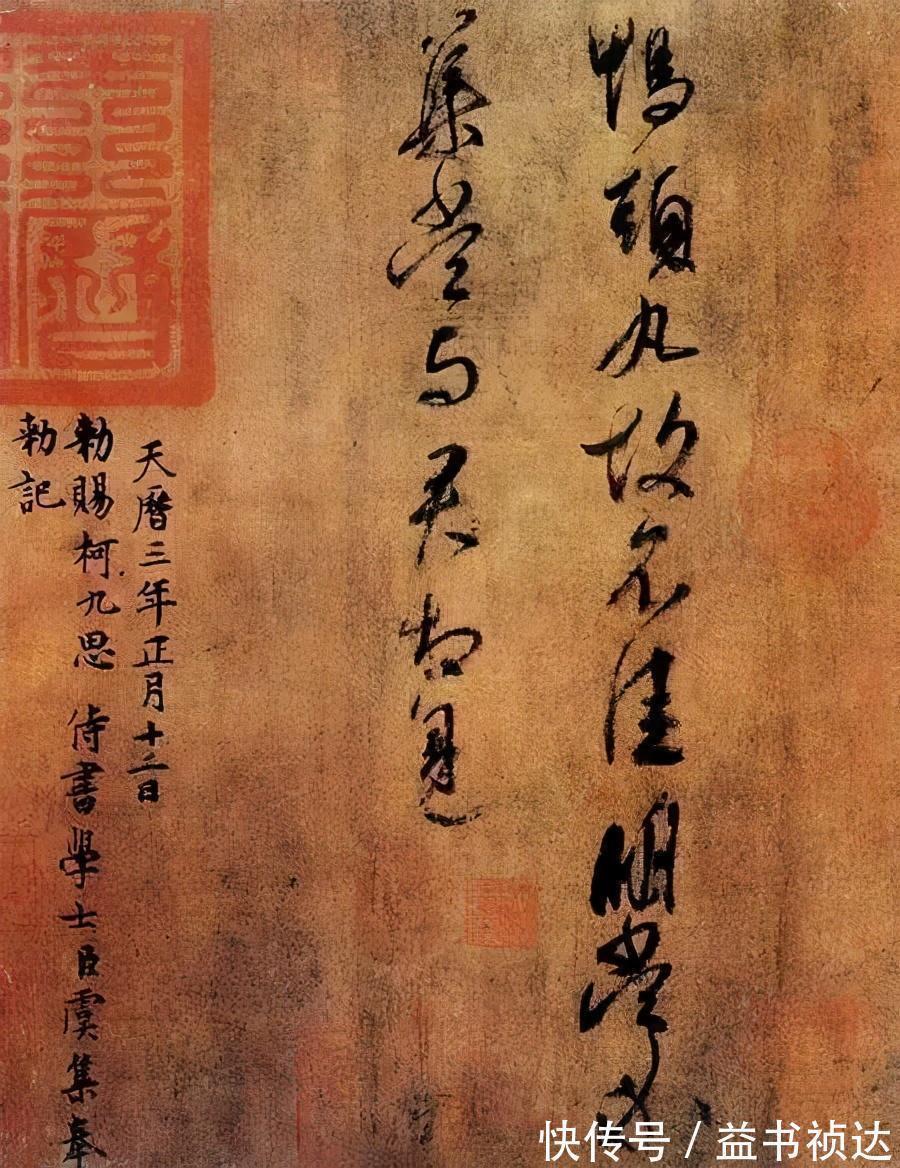 鴨頭丸故不佳明當必
集當与君相見
天曆三年正月十二日
勅賜柯九思 侍書學士臣虞集奉
勅記
快传号 / 益书祯达